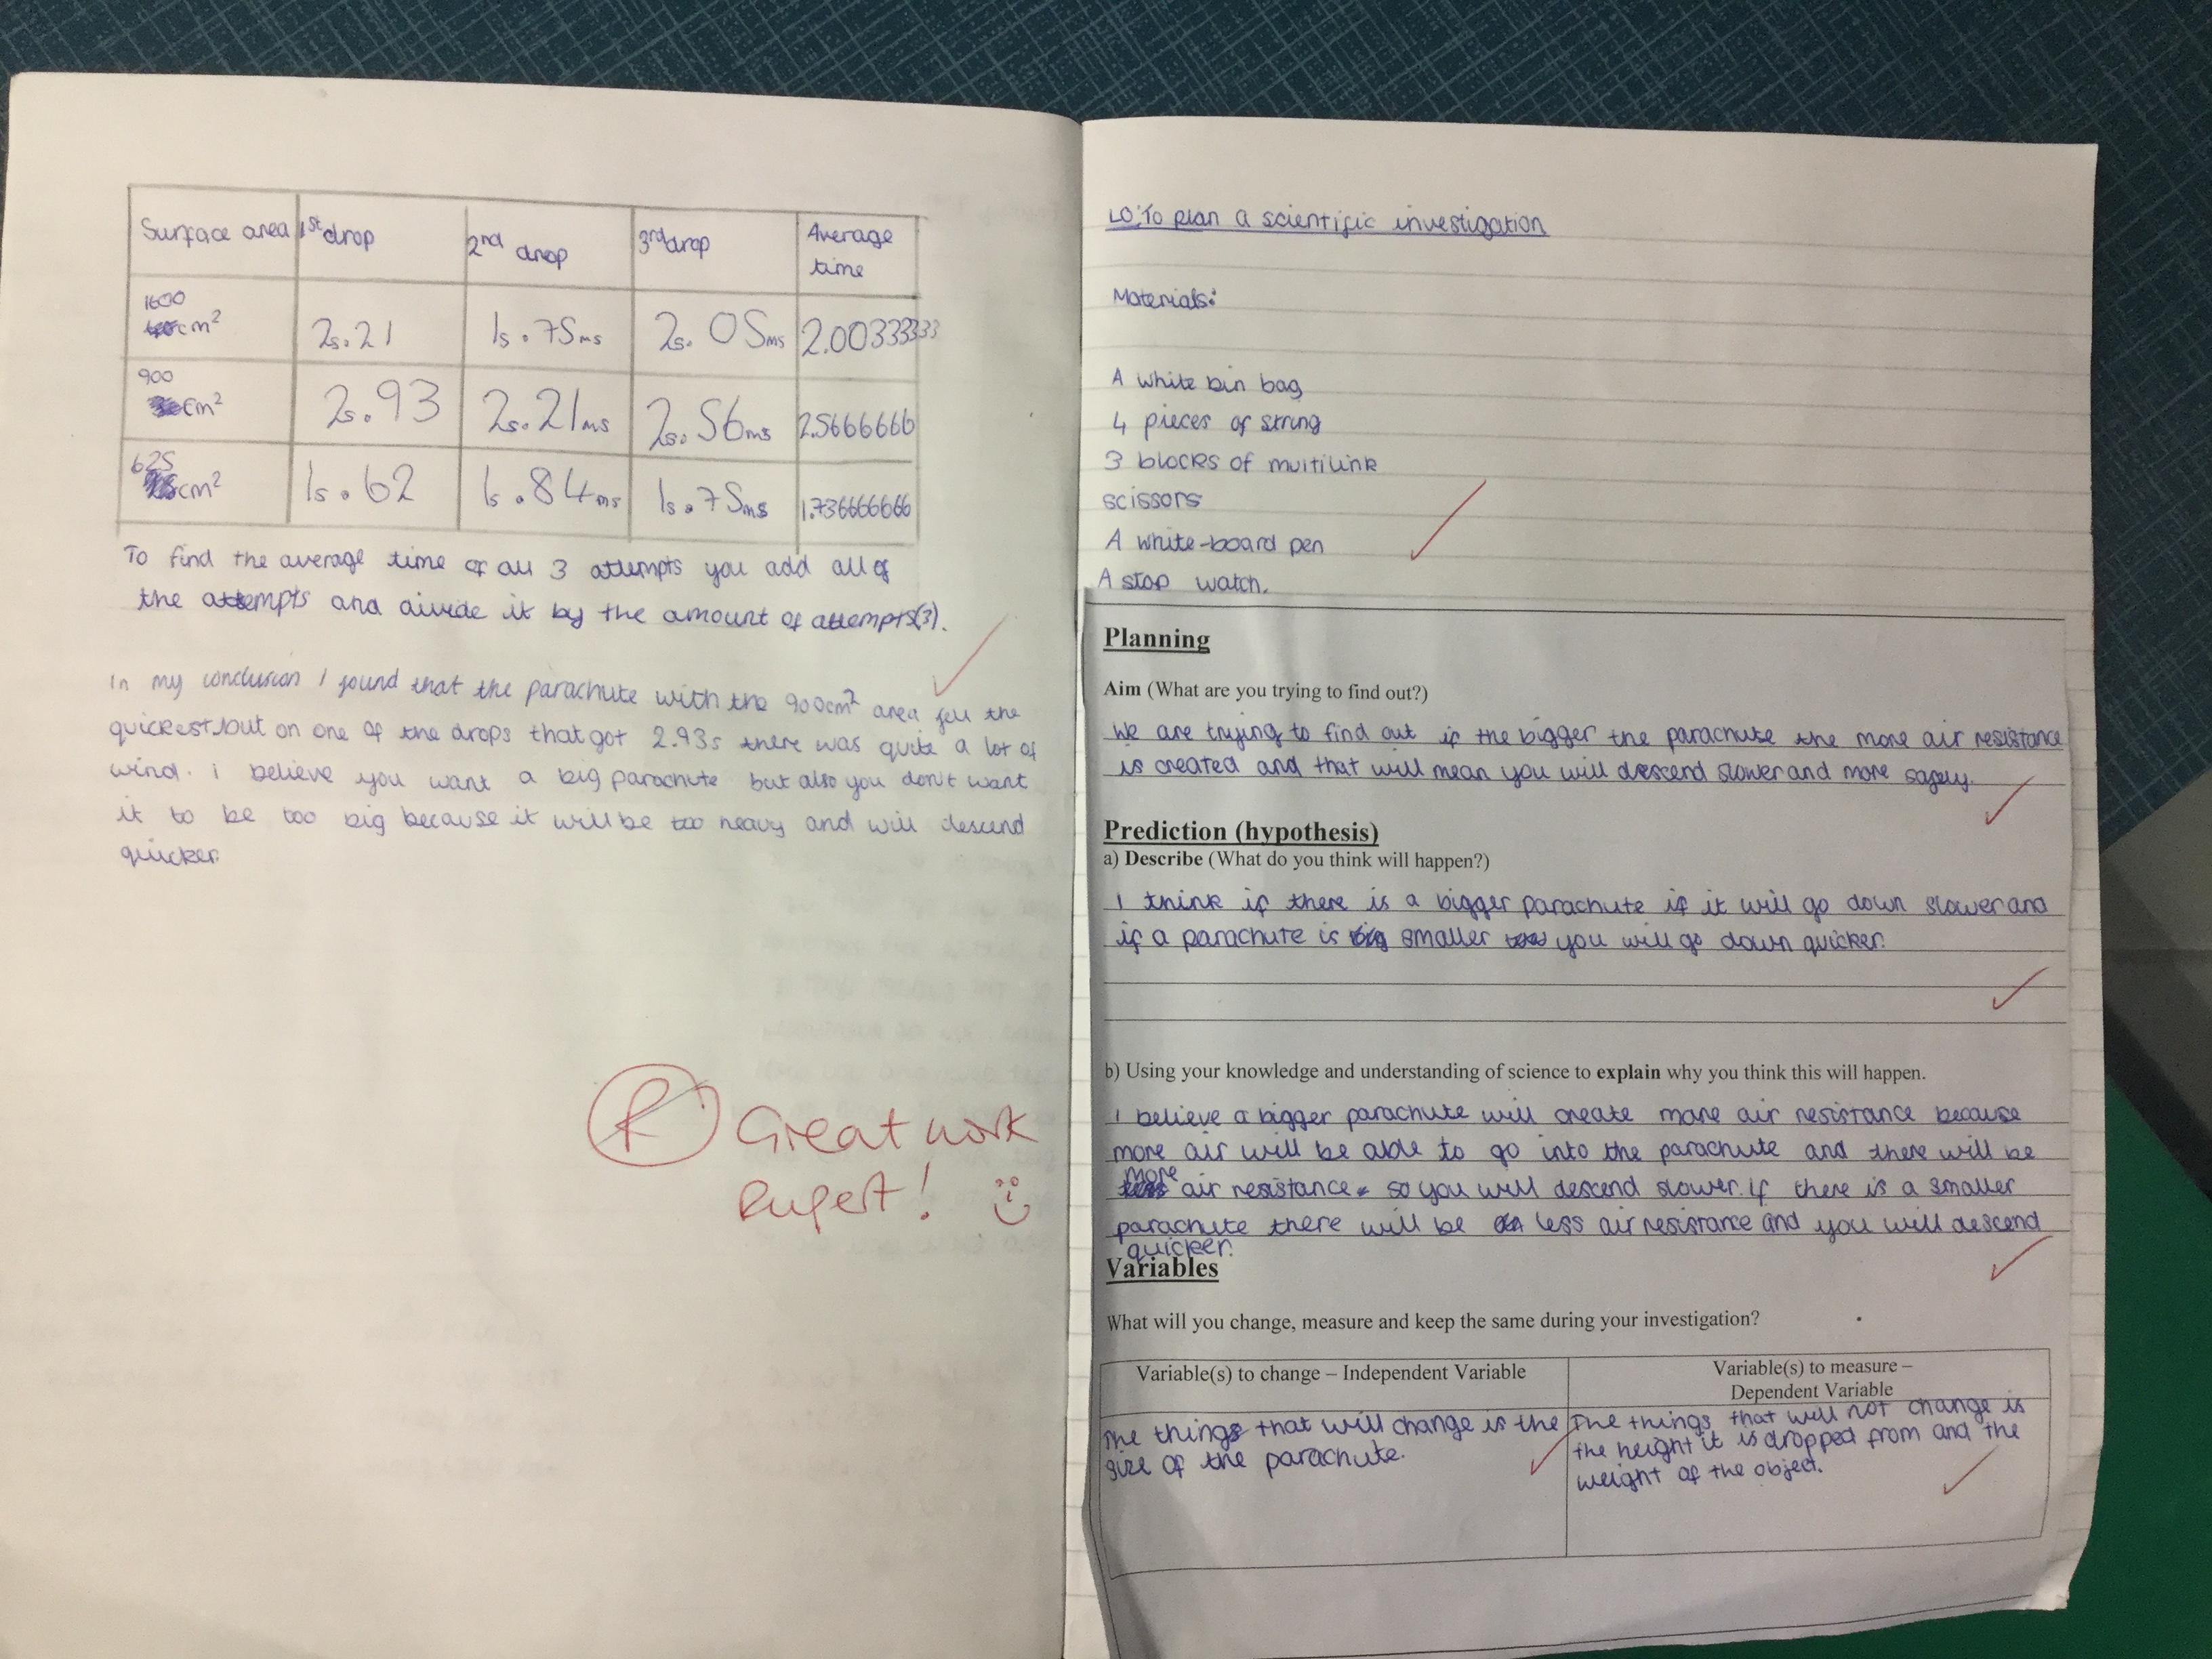 Surface area 1st drop 2nd drop 3rd drop Average time
1600 cm² 2s.21 1s.75ms 2s.05ms 2.00333333
900 cm² 2s.93 2s.21ms 2s.56ms 2.5666666
625 cm² 1s.62 1s.84ms 1s.75ms 1.736666666
To find the average time of all 3 attempts you add all of
the attempts and divide it by the amount of attempts(3).
In my conclusion I found that the parachute with the 900cm² area fell the
quickest, but on one of the drops that got 2.93s there was quite a lot of
wind. i believe you want a big parachute but also you don't want
it to be too big because it will be too heavy and will descend
quicker.
R Great work
Rupert!
LO: To plan a scientific investigation
Materials:
A white bin bag
4 pieces of string
3 blocks of multilink
scissors
A white-board pen
A stop watch.
Planning
Aim (What are you trying to find out?)
We are trying to find out if the bigger the parachute the more air resistance
is created and that will mean you will descend slower and more safely.
Prediction (hypothesis)
a) Describe (What do you think will happen?)
I think if there is a bigger parachute if it will go down slower and
if a parachute is big smaller you will go down quicker.
b) Using your knowledge and understanding of science to explain why you think this will happen.
I believe a bigger parachute will create more air resistance because
more air will be able to go into the parachute and there will be
more air resistance so you will descend slower. If there is a smaller
parachute there will be less air resistance and you will descend
quicker.
Variables
What will you change, measure and keep the same during your investigation?
Variable(s) to change – Independent Variable
Variable(s) to measure –
Dependent Variable
The things that will change is the
size of the parachute.
The things that will not change is
the height it is dropped from and the
weight of the object.